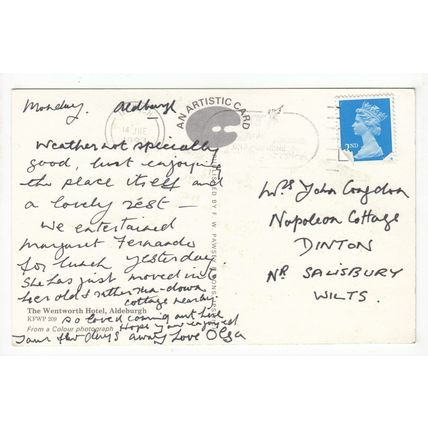 Monday. Aldburgh
14 JNE
AN ARTISTIC CARD
2ND
Weather not specially
good, but enjoying
the place itself and
a lovely rest –
We entertained
Margaret Fernando
for lunch yesterday.
She has just moved into
her old & rather run-down
cottage nearby.
The Wentworth Hotel, Aldeburgh
KFWP 209
so loved coming out
From a Colour photograph
Hope you enjoyed
your few days away Love Olga
BY F. W. PAWSEY & SONS
Mrs John Congdon
Napoleon Cottage
DINTON
NR SALISBURY
WILTS.